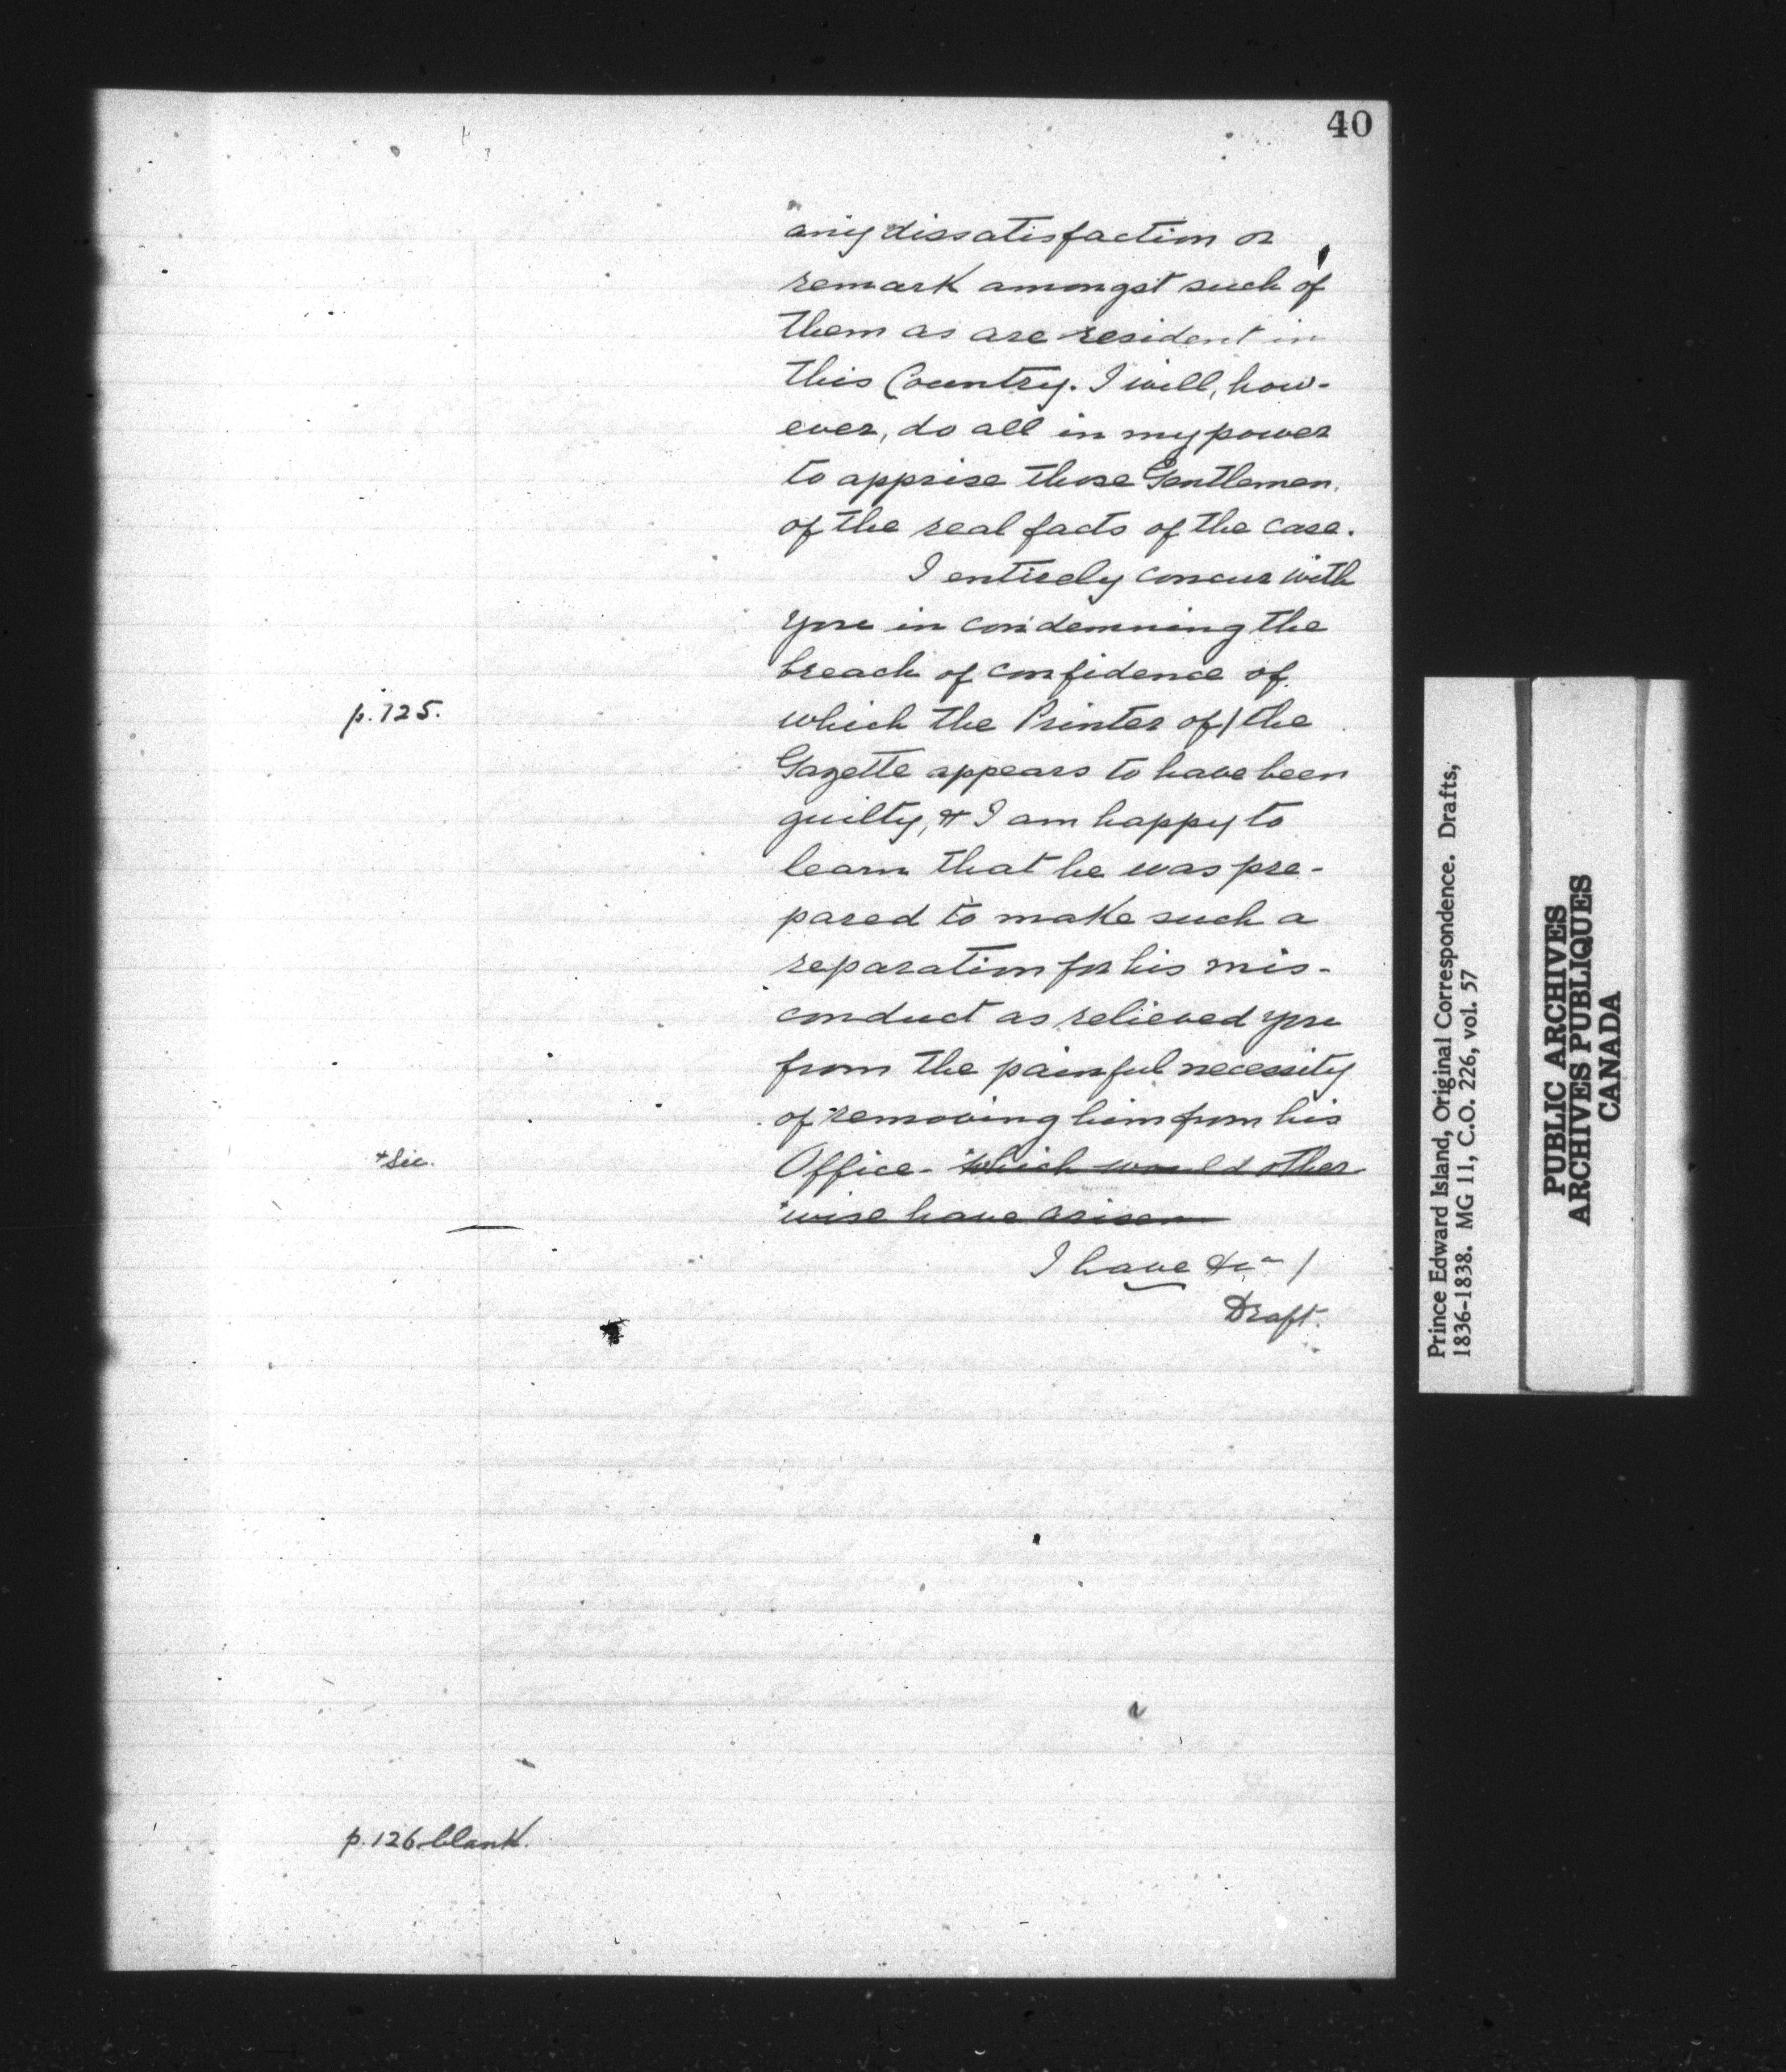 40
any dissatisfaction or
remark amongst such of
them as are resident in
this Country. I will, how-
ever, do all in my power
to apprise those Gentlemen.
of the real facts of the case.
I entirely concur with
you in condemning the
breach of confidence of
p. 125.
which the Printer of / the
Gazette appears to have been
guilty, & I am happy to
learn that he was pre-
pared to make such a
reparation for his mis-
conduct as relieved you
from the painful necessity
of removing him from his
+ Sic.
Office - which would other
wise have arisen
I have &c /
Draft.
p. 126 blank.
Prince Edward Island, Original Correspondence. Drafts,
1836-1838. MG 11, C.O. 226, vol. 57
PUBLIC ARCHIVES
ARCHIVES PUBLIQUES
CANADA